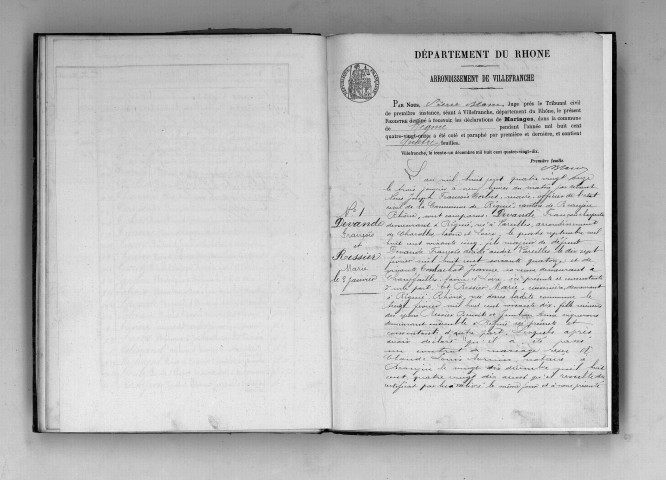 DÉPARTEMENT DU RHONE
ARRONDISSEMENT DE VILLEFRANCHE
PAR NOUS, Pierre Juge près le Tribunal civil
de première instance, séant à Villefranche, département du Rhône, le présent
REGISTRE destiné à recevoir les déclarations de Mariages, dans la commune
de Régnié pendant l'année mil huit cent
quatre-vingt-onze a été coté et paraphé par première et dernière, et contient
feuilles.
Villefranche, le trente-un décembre mil huit cent quatre-vingt-dix.
Première feuille.
L'an mil huit cent quatre vingt onze
le trois janvier à neuf heures du matin par devant
Nous Joseph François maire officier de l'état
civil de la Commune de Régnié, canton de Beaujeu
Rhône, sont comparus Devande François
demeurant à Régnié, né à Vareilles, arrondissement
de Charolles, Saône et Loire, le quatre septembre mil
huit cent soixante cinq, fils majeur de défunt
Devande François décédé audit Vareilles le dix sept
février mil huit cent soixante quatorze et de
vivante Jeanne sa veuve demeurant à
Chauffailles, Saône et Loire, ici présente et consentante
d'une part. Et Ressier Marie, cuisinière, demeurant
à Régnié Rhône, née dans ladite commune le
février mil huit cent soixante dix, fille mineure
des époux Ressier Benoît et
demeurant ensemble à Régnié ici présents et
consentants d'autre part. Lesquels après
avoir déclaré qu'il a été passé
un contrat de mariage reçu Me
Claude Louis notaire à
Beaujeu le vingt six décembre mil huit
cent quatre vingt dix ainsi qu'il résulte du
certificat par lui délivré le même jour et à nous présenté
No 1
Devande
François
et
Ressier
Marie
le 3 janvier